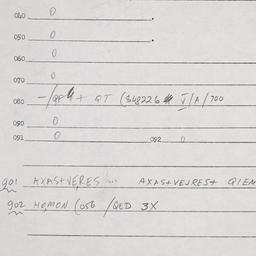 040 0
050 0
060 0
070 0
080 QT (348226 V/A/700
090 0
091 0 092 0
901 AXAS+VERES AXAS+VEJRES+ QIEM
902 HOMON (056 /QED 3X